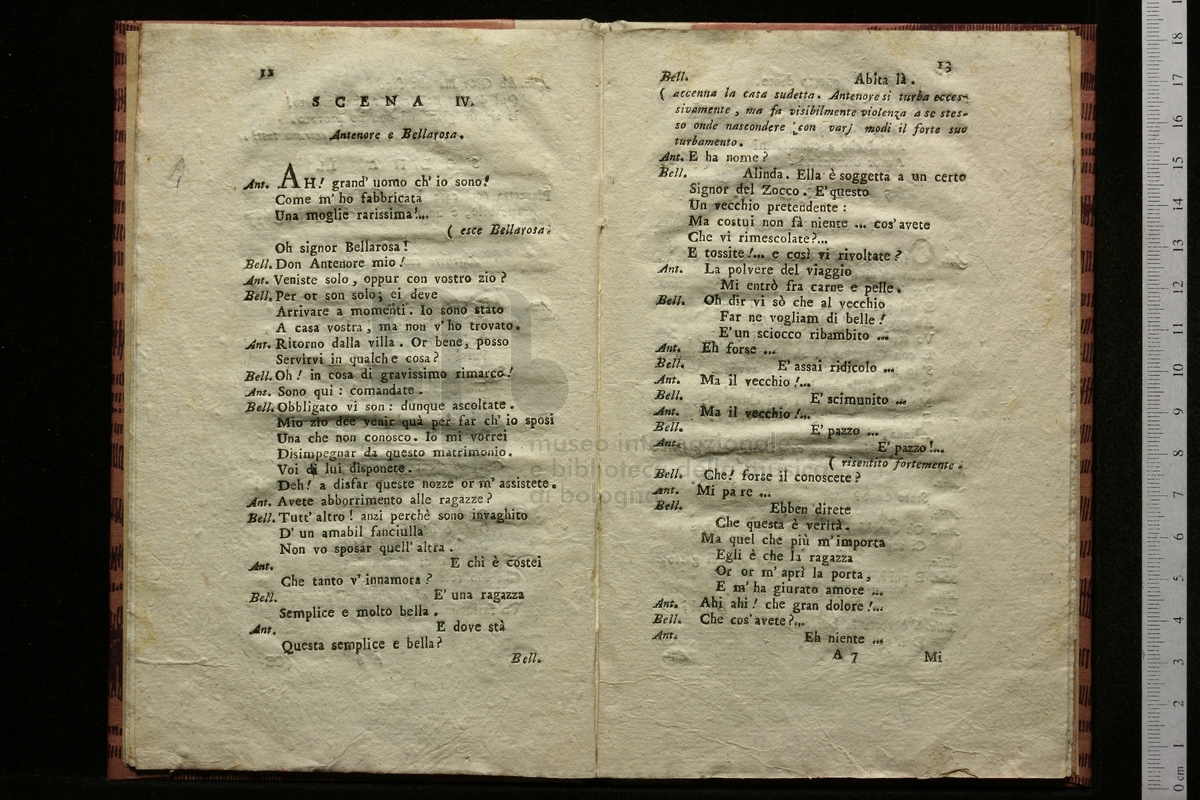 12
SCENA IV.
Antenore e Bellarosa.
Ant. AH! grand' uomo ch' io sono!
Come m' ho fabbricata
Una moglie rarissima!...
( esce Bellarosa.
Oh signor Bellarosa!
Bell. Don Antenore mio!
Ant. Veniste solo, oppur con vostro zio?
Bell. Per or son solo; ei deve
Arrivare a momenti. Io sono stato
A casa vostra, ma non v' ho trovato.
Ant. Ritorno dalla villa. Or bene, posso
Servirvi in qualche cosa?
Bell. Oh! in cosa di gravissimo rimarco!
Ant. Sono qui: comandate.
Bell. Obbligato vi son: dunque ascoltate.
Mio zio dee venir quà per far ch' io sposi
Una che non conosco. Io mi vorrei
Disimpegnar da questo matrimonio.
Voi di lui disponete.
Deh! a disfar queste nozze or m' assistete.
Ant. Avete abborrimento alle ragazze?
Bell. Tutt' altro! anzi perchè sono invaghito
D' un amabil fanciulla
Non vo sposar quell' altra.
Ant. E chi è costei
Che tanto v' innamora?
Bell. E' una ragazza
Semplice e molto bella.
Ant. E dove stà
Questa semplice e bella?
Bell.
13
Bell. Abita là.
( accenna la casa sudetta. Antenore si turba ecces-
sivamente, ma fa visibilmente violenza a se stes-
so onde nascondere con varj modi il forte suo
turbamento.
Ant. E ha nome?
Bell. Alinda. Ella è soggetta a un certo
Signor del Zocco. E' questo
Un vecchio pretendente:
Ma costui non fà niente ... cos' avete
Che vi rimescolate?...
E tossite!... e così vi rivoltate?
Ant. La polvere del viaggio
Mi entrò fra carne e pelle.
Bell. Oh dir vi sò che al vecchio
Far ne vogliam di belle!
E' un sciocco ribambito ...
Ant. Eh forse ...
Bell. E' assai ridicolo ...
Ant. Ma il vecchio!...
Bell. E' scimunito ...
Ant. Ma il vecchio!...
Bell. E' pazzo ...
Ant. E' pazzo!...
( risentito fortemente.
Bell. Che! forse il conoscete?
Ant. Mi pare ...
Bell. Ebben direte
Che questa è verità.
Ma quel che più m' importa
Egli è che la ragazza
Or or m' aprì la porta,
E m' ha giurato amore ...
Ant. Ahi ahi! che gran dolore!...
Bell. Che cos' avete?...
Ant. Eh niente ...
A 7 Mi
museo internazionale
e biblioteca della musica
di bologna
18
17
16
15
14
13
12
11
10
9
8
7
6
5
4
3
2
1
0 cm